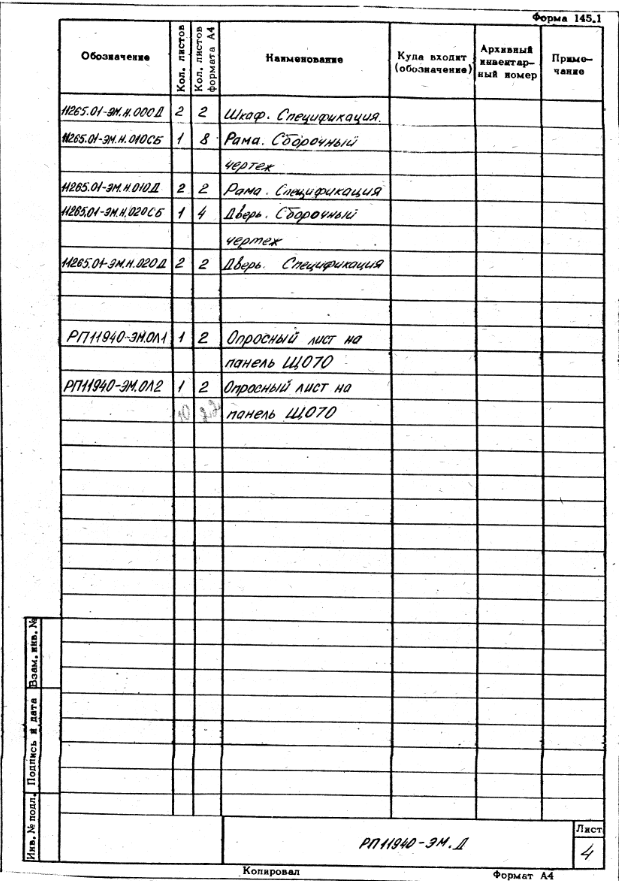 Форма 145.1
Обозначение
Кол. листов
Кол. листов формата А4
Наименование
Куда входит (обозначение)
Архивный инвентарный номер
Примечание
11265.01-ЭМ.Н.000Д 2 2 Шкаф. Спецификация.
11265.01-ЭМ.Н.010СБ 1 8 Рама. Сборочный
чертеж
11265.01-ЭМ.Н.010Д 2 2 Рама. Спецификация
11265.01-ЭМ.Н.020СБ 1 4 Дверь. Сборочный
чертеж
11265.01-ЭМ.Н.020Д 2 2 Дверь. Спецификация
РП11940-ЭМ.ОЛ1 1 2 Опросный лист на
панель ЩО70
РП11940-ЭМ.ОЛ2 1 2 Опросный лист на
10 22 панель ЩО70
Взам. инв. №
Подпись и дата
Инв. № подл.
РП11940-ЭМ.Д
Лист
4
Копировал Формат А4